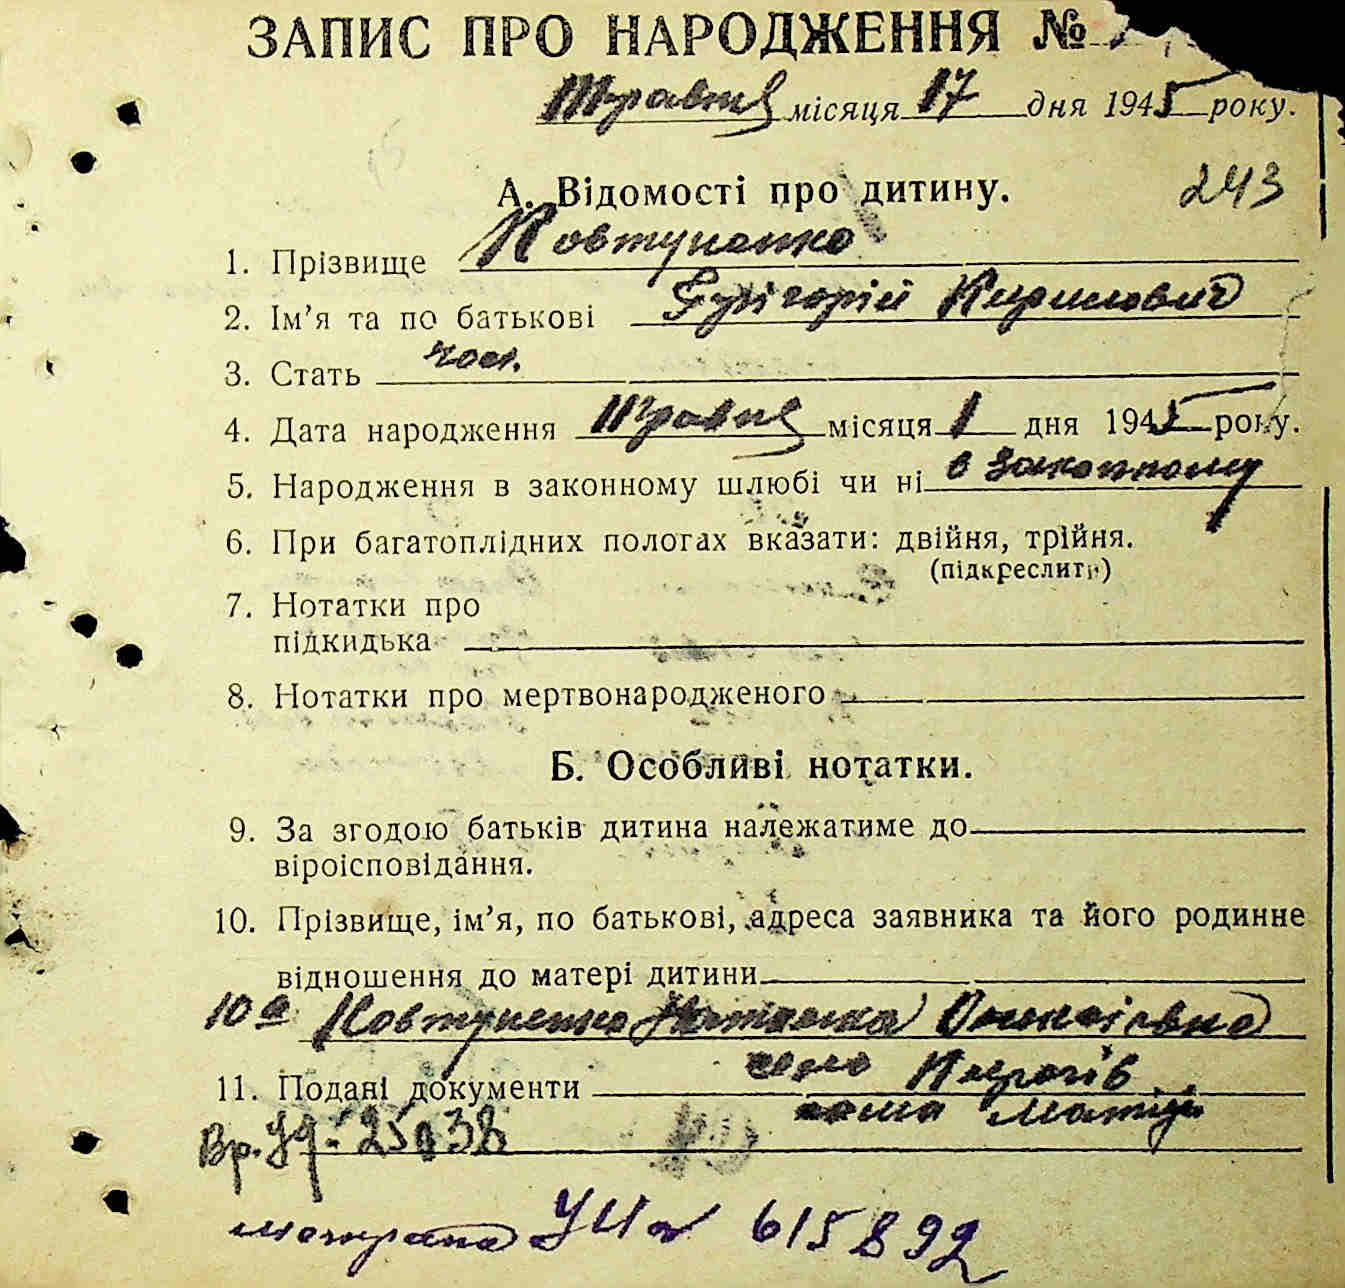 ЗАПИС ПРО НАРОДЖЕННЯ №
Травня місяця 17 дня 1945 року.
А. Відомості про дитину.
243
1. Прізвище Ковтуненко
2. Ім'я та по батькові Григорій Кирилович
3. Стать чол.
4. Дата народження Травня місяця 1 дня 1945 року.
5. Народження в законному шлюбі чи ні в законному
6. При багатоплідних пологах вказати: двійня, трійня.
(підкреслити)
7. Нотатки про
підкидька
8. Нотатки про мертвонародженого
Б. Особливі нотатки.
9. За згодою батьків дитина належатиме до
віроісповідання.
10. Прізвище, ім'я, по батькові, адреса заявника та його родинне
відношення до матері дитини
10а Ковтуненко
11. Подані документи село
сама мати
Вр. уд. 25038
УЦ 615892